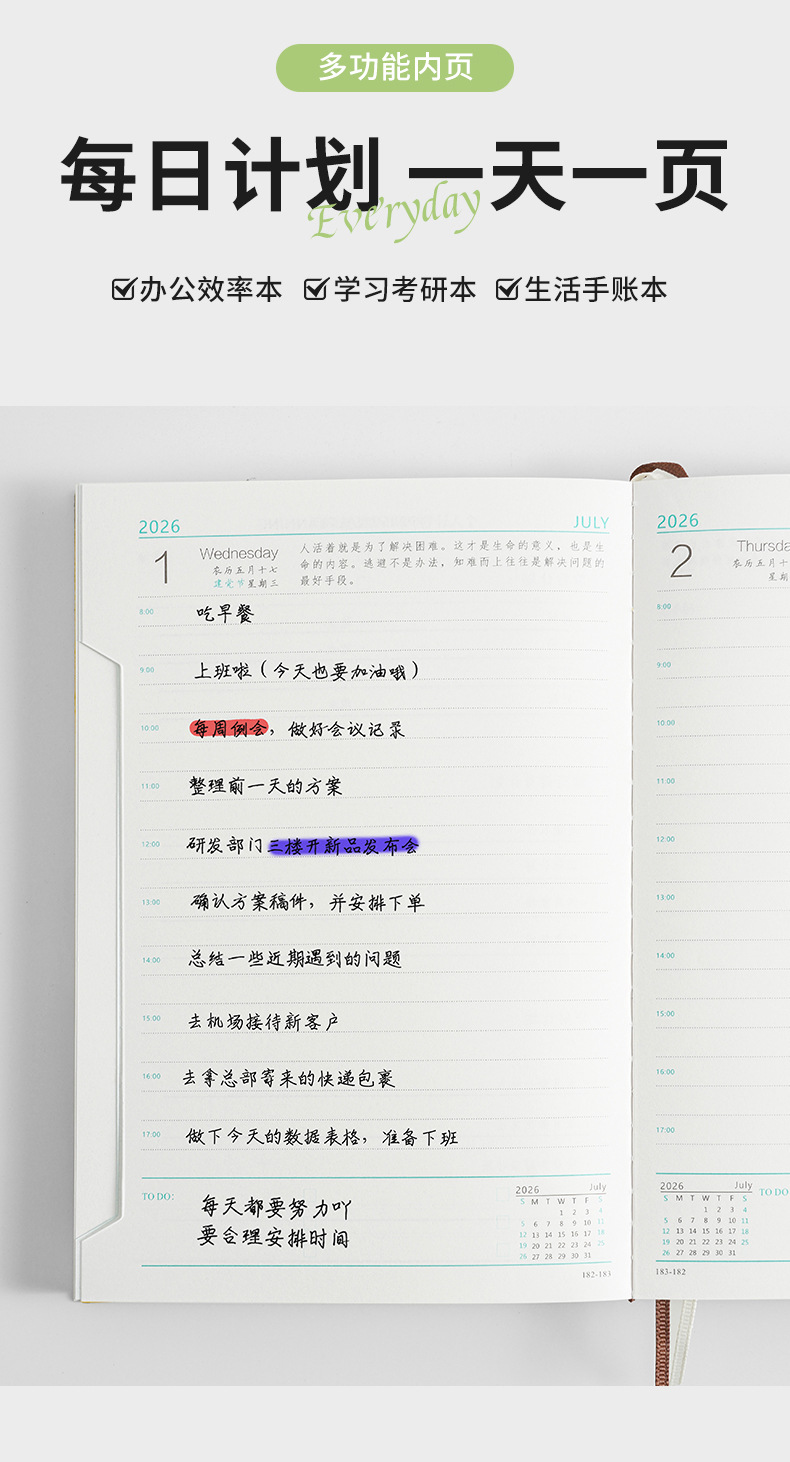 多功能内页
每日计划 一天一页
Everyday
办公效率本 学习考研本 生活手账本
2026 JULY
1 Wednesday
农历五月十七
建党节 星期三
人活着就是为了解决困难。这才是生命的意义，也是生
命的内容。逃避不是办法，知难而上往往是解决问题的
最好手段。
8:00 吃早餐
9:00 上班啦（今天也要加油哦）
10:00 每周例会，做好会议记录
11:00 整理前一天的方案
12:00 研发部门三楼开新品发布会
13:00 确认方案稿件，并安排下单
14:00 总结一些近期遇到的问题
15:00 去机场接待新客户
16:00 去拿总部寄来的快递包裹
17:00 做下今天的数据表格，准备下班
TO DO:
每天都要努力吖
要合理安排时间
2026 July
S M T W T F S
1 2 3 4
5 6 7 8 9 10 11
12 13 14 15 16 17 18
19 20 21 22 23 24 25
26 27 28 29 30 31
182-183
2026
2 Thursda
农历五月十
星期
8:00
9:00
10:00
11:00
12:00
13:00
14:00
15:00
16:00
17:00
2026 July
S M T W T F S
1 2 3 4
5 6 7 8 9 10 11
12 13 14 15 16 17 18
19 20 21 22 23 24 25
26 27 28 29 30 31
TO DO
183-182